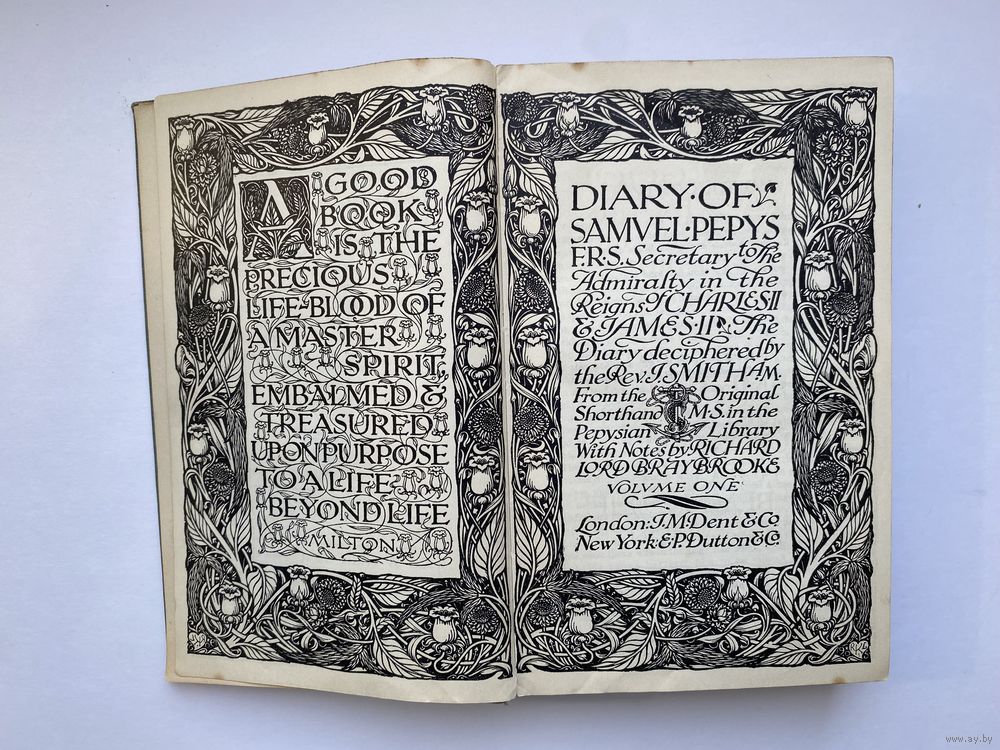 A GOOD
BOOK
IS THE
PRECIOUS
LIFE-BLOOD OF
A MASTER
SPIRIT,
EMBALMED &
TREASURED
UPON PURPOSE
TO A LIFE
BEYOND LIFE
MILTON
DIARY·OF
SAMVEL·PEPYS
F.R.S. Secretary to The
Admiralty in the
Reigns of CHARLES·II
& JAMES·II The
Diary deciphered by
the Rev. J. SMITH A.M.
From the Original
Shorthand M·S. in the
Pepysian Library
With Notes by RICHARD
LORD BRAYBROOKE
VOLVME ONE
London: J. M. Dent & Co.
New York: E. P. Dutton & Co.
www.ay.by